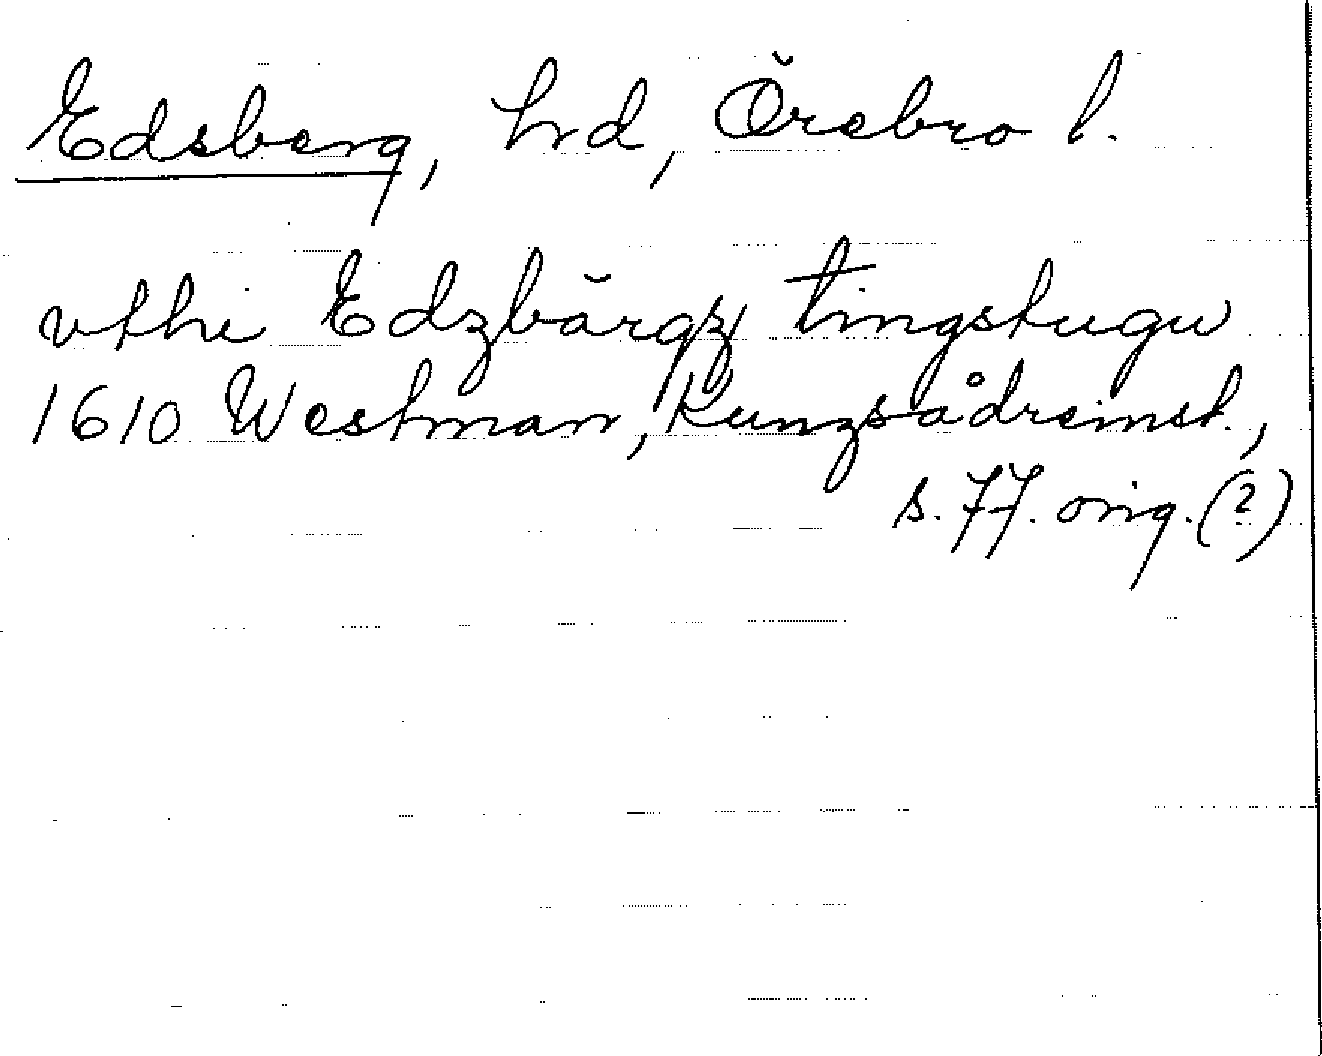 Edsberg, hrd, Örebro l.
vthi Edzbärgz tingstugu
1610 Westman, Kungsådreinst.,
s. 77. orig. (2)